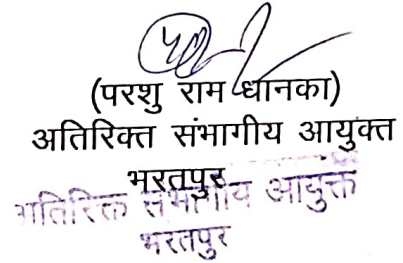 (परशु राम धानका)
अतिरिक्त संभागीय आयुक्त
भरतपुर
अतिरिक्त संभागीय आयुक्त
भरतपुर